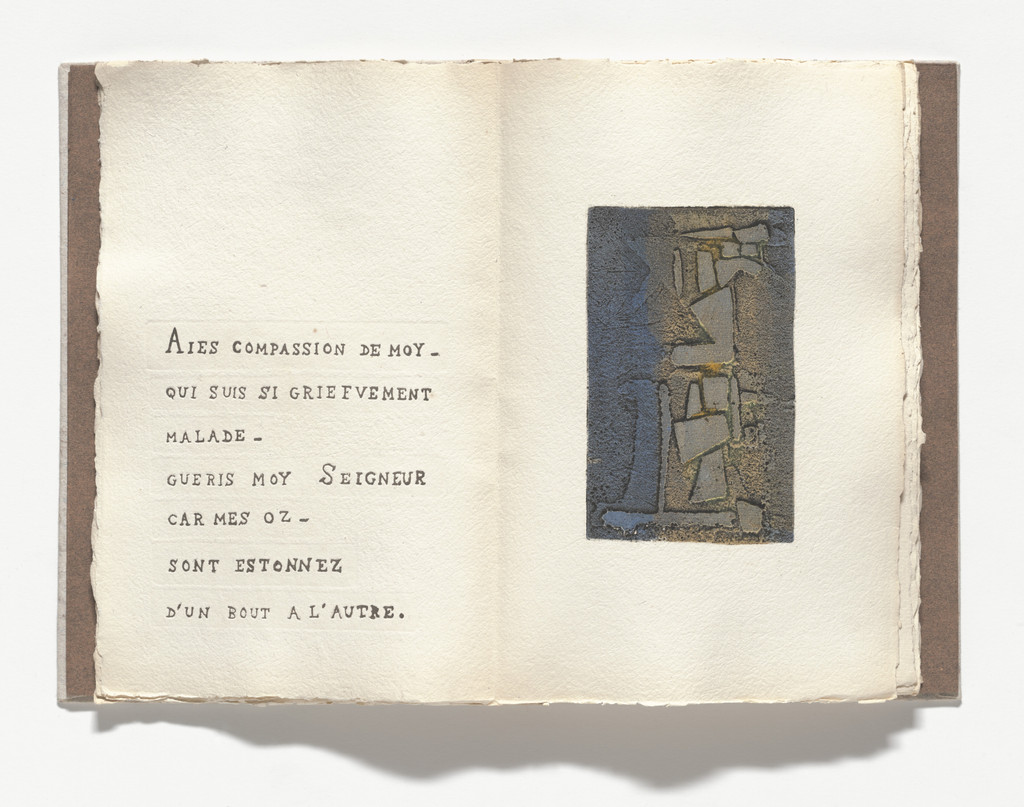 AIES COMPASSION DE MOY_
QUI SUIS SI GRIEFVEMENT
MALADE_
GUERIS MOY SEIGNEUR
CAR MES OZ_
SONT ESTONNEZ
D'UN BOUT A L'AUTRE.